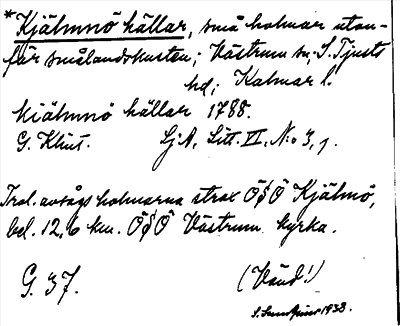 * Kjälmnö hällar, små holmar utan-
för smålandskusten; Västrum sn; S. Tjusts
hd; Kalmar l.
Kiälmnö hällar 1788.
G. Klint. SjA, Litt. VI, No 3, 1.
Trol. avtågs holmarna strax ÖSÖ Kjälmö,
bel. 12,6 km. ÖSÖ Västrum kyrka.
G. 37. (Vänd!)
1938.